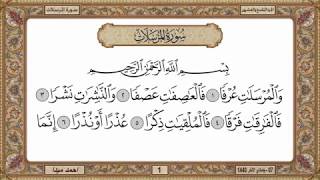 سورة المرسلات
سُورَةُ المُرْسَلَاتِ
بِسْمِ اللَّهِ الرَّحْمَٰنِ الرَّحِيمِ
وَالْمُرْسَلَاتِ عُرْفًا ١ فَالْعَاصِفَاتِ عَصْفًا ٢ وَالنَّاشِرَاتِ نَشْرًا ٣
فَالْفَارِقَاتِ فَرْقًا ٤ فَالْمُلْقِيَاتِ ذِكْرًا ٥ عُذْرًا أَوْ نُذْرًا ٦ إِنَّمَا
1